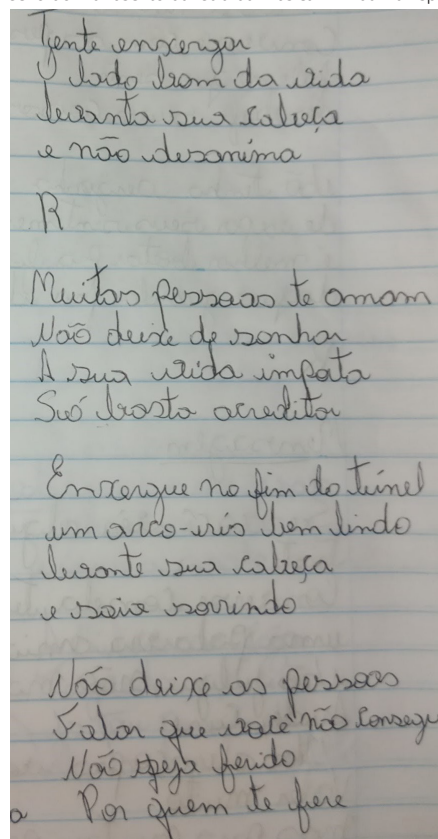 Tente enxergar
O lado bom da vida
levanta sua cabeça
e não desanima
R
Muitas pessoas te amam
Não deixe de sonhar
A sua vida impata
Só basta acreditar
Enxergue no fim do túnel
um arco-iris bem lindo
levante sua cabeça
e saia sorrindo
Não deixe as pessoas
Falar que você não consegu
Não seja ferido
a Por quem te fere